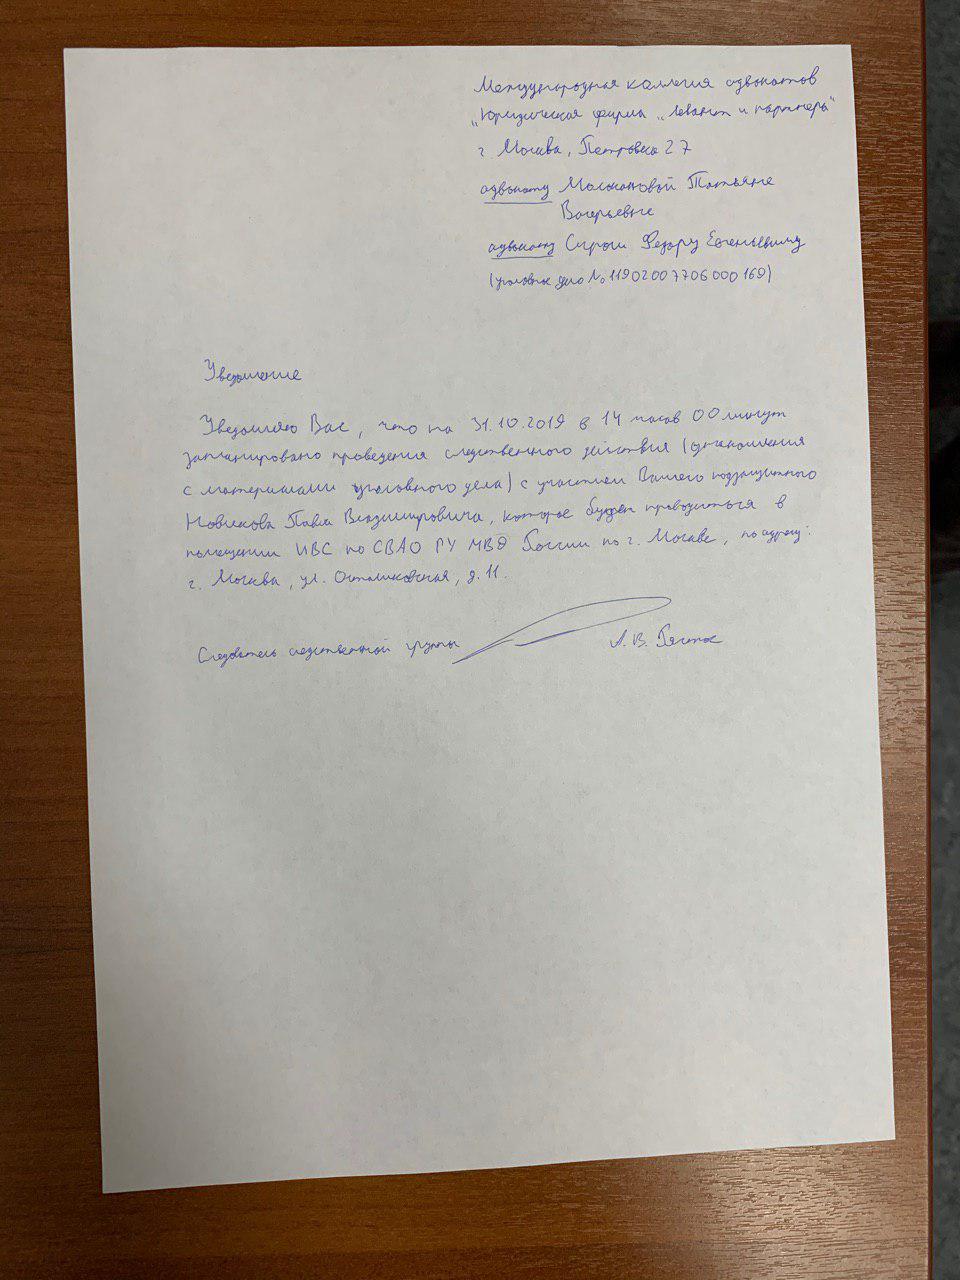 Международная коллегия адвокатов
"Юридическая фирма "Левант и партнеры"
г. Москва, Петровка 27
адвокату Молокановой Татьяне
Валерьевне
адвокату Федору Евгеньевичу
(уголовное дело № 11902007706000169)
Уведомление
Уведомляю Вас, что на 31.10.2019 в 14 часов 00 минут
запланировано проведения следственного действия (ознакомления
с материалами уголовного дела) с участием Вашего подзащитного
Новикова Павла Владимировича, которое будет проводиться в
помещении ИВС по СВАО ГУ МВД России по г. Москве, по адресу:
г. Москва, ул. Останкинская, д. 11.
Следователь следственной группы А. В.